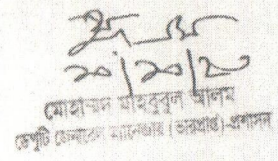 ২০|১০|২০
মোহাম্মদ মাহবুবুল আলম
ডেপুটি জেনারেল ম্যানেজার (ভারপ্রাপ্ত)-প্রশাসন